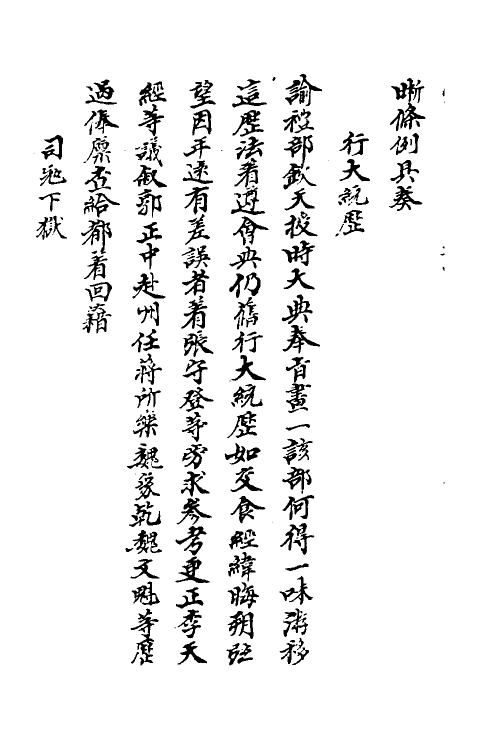 晰條例具奏
行大統歷
諭禮部欽天授時大典奉旨畫一該部何得一味游移
這歷法着遵會典仍舊行大統歷如交食經緯晦朔弦
望因年遠有差誤者着張守登等旁求參考更正李天
經等議叙郭正中赴州任蔣所樂魏象乾魏文魁等歷
過俸廩查給都着回籍
司 下獄